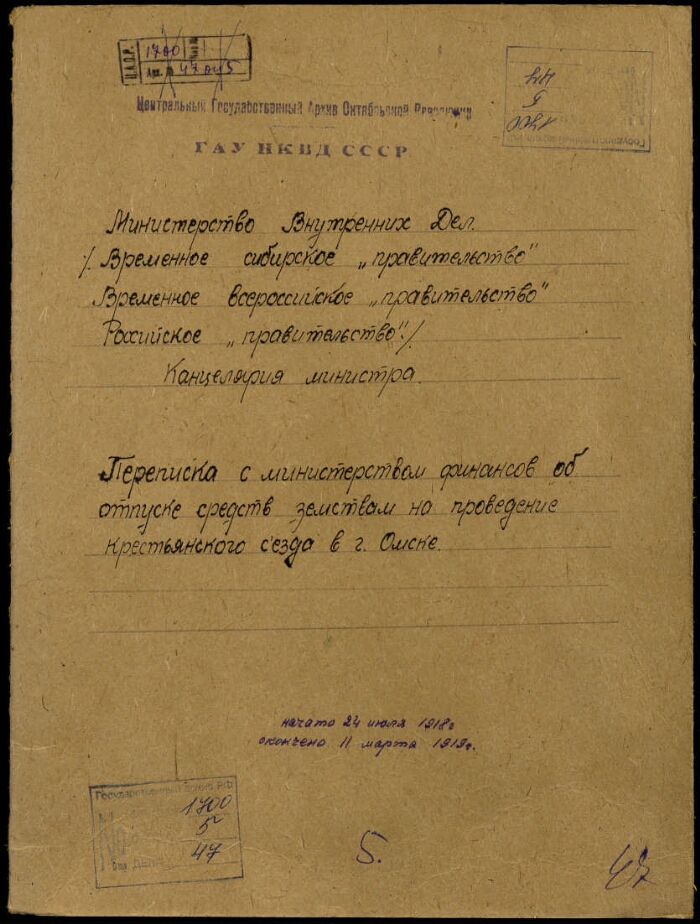 Ц.А.О.Р.
1700
Арх. №
Центральный Государственный Архив Октябрьской Революции
ГАУ НКВД СССР
47
5
1700
Министерство Внутренних Дел.
/. Временное сибирское „правительство"
Временное всероссийское „правительство"
Российское „правительство"./.
Канцелярия министра.
Переписка с министерством финансов об
отпуске средств земствам на проведение
крестьянского с'езда в г. Омске.
начато 24 июля 1918г
окончено 11 марта 1919г.
Государственный архив РФ
1700
5
47
5.
47